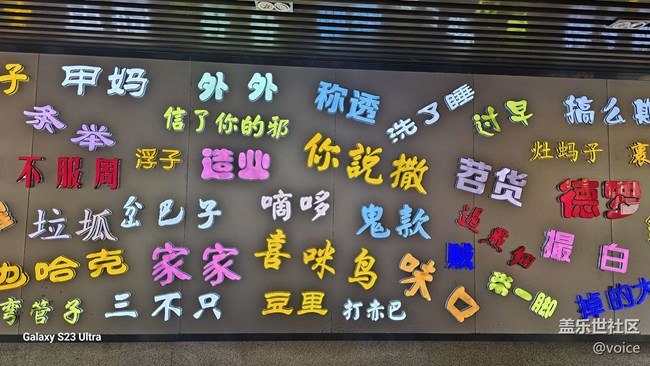 子
甲妈
外外
称透
洗了睡
过早
搞么
信了你的邪
举
不服周
浮子
造业
你说撒
苕货
灶蚂子
德罗
垃圾
岔巴子
嘀哆
鬼款
撮白
也哈克
家家
喜
咪
鸟
味口
弯管子
三不只
豆里
打赤巴
茶一脚
掉的大
Galaxy S23 Ultra
盖乐世社区
@voice